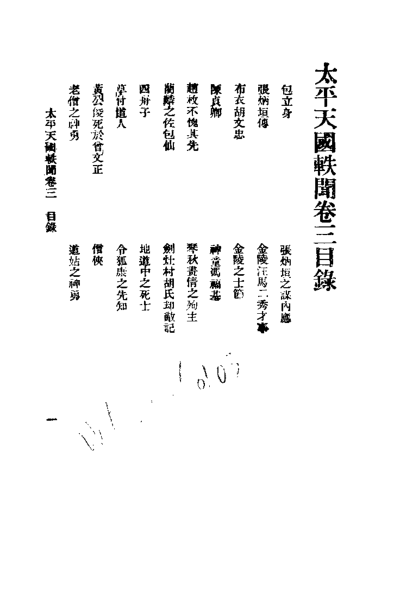 太平天國軼聞卷三目錄
包立身
張炳垣之謀內應
張炳垣傳
金陵汪馬二秀才事
布衣胡文忠
金陵之士節
陳貞卿
神童
趙枚不愧其先
琴秋畫倩之殉主
蘭麟之佐包仙
劍灶村胡氏却敵記
四舟子
地道中之死士
草付道人
令狐康之先知
黃公俊死於曾文正
僧俠
老僧之神勇
道姑之神勇
太平天國軼聞卷三 目錄
一